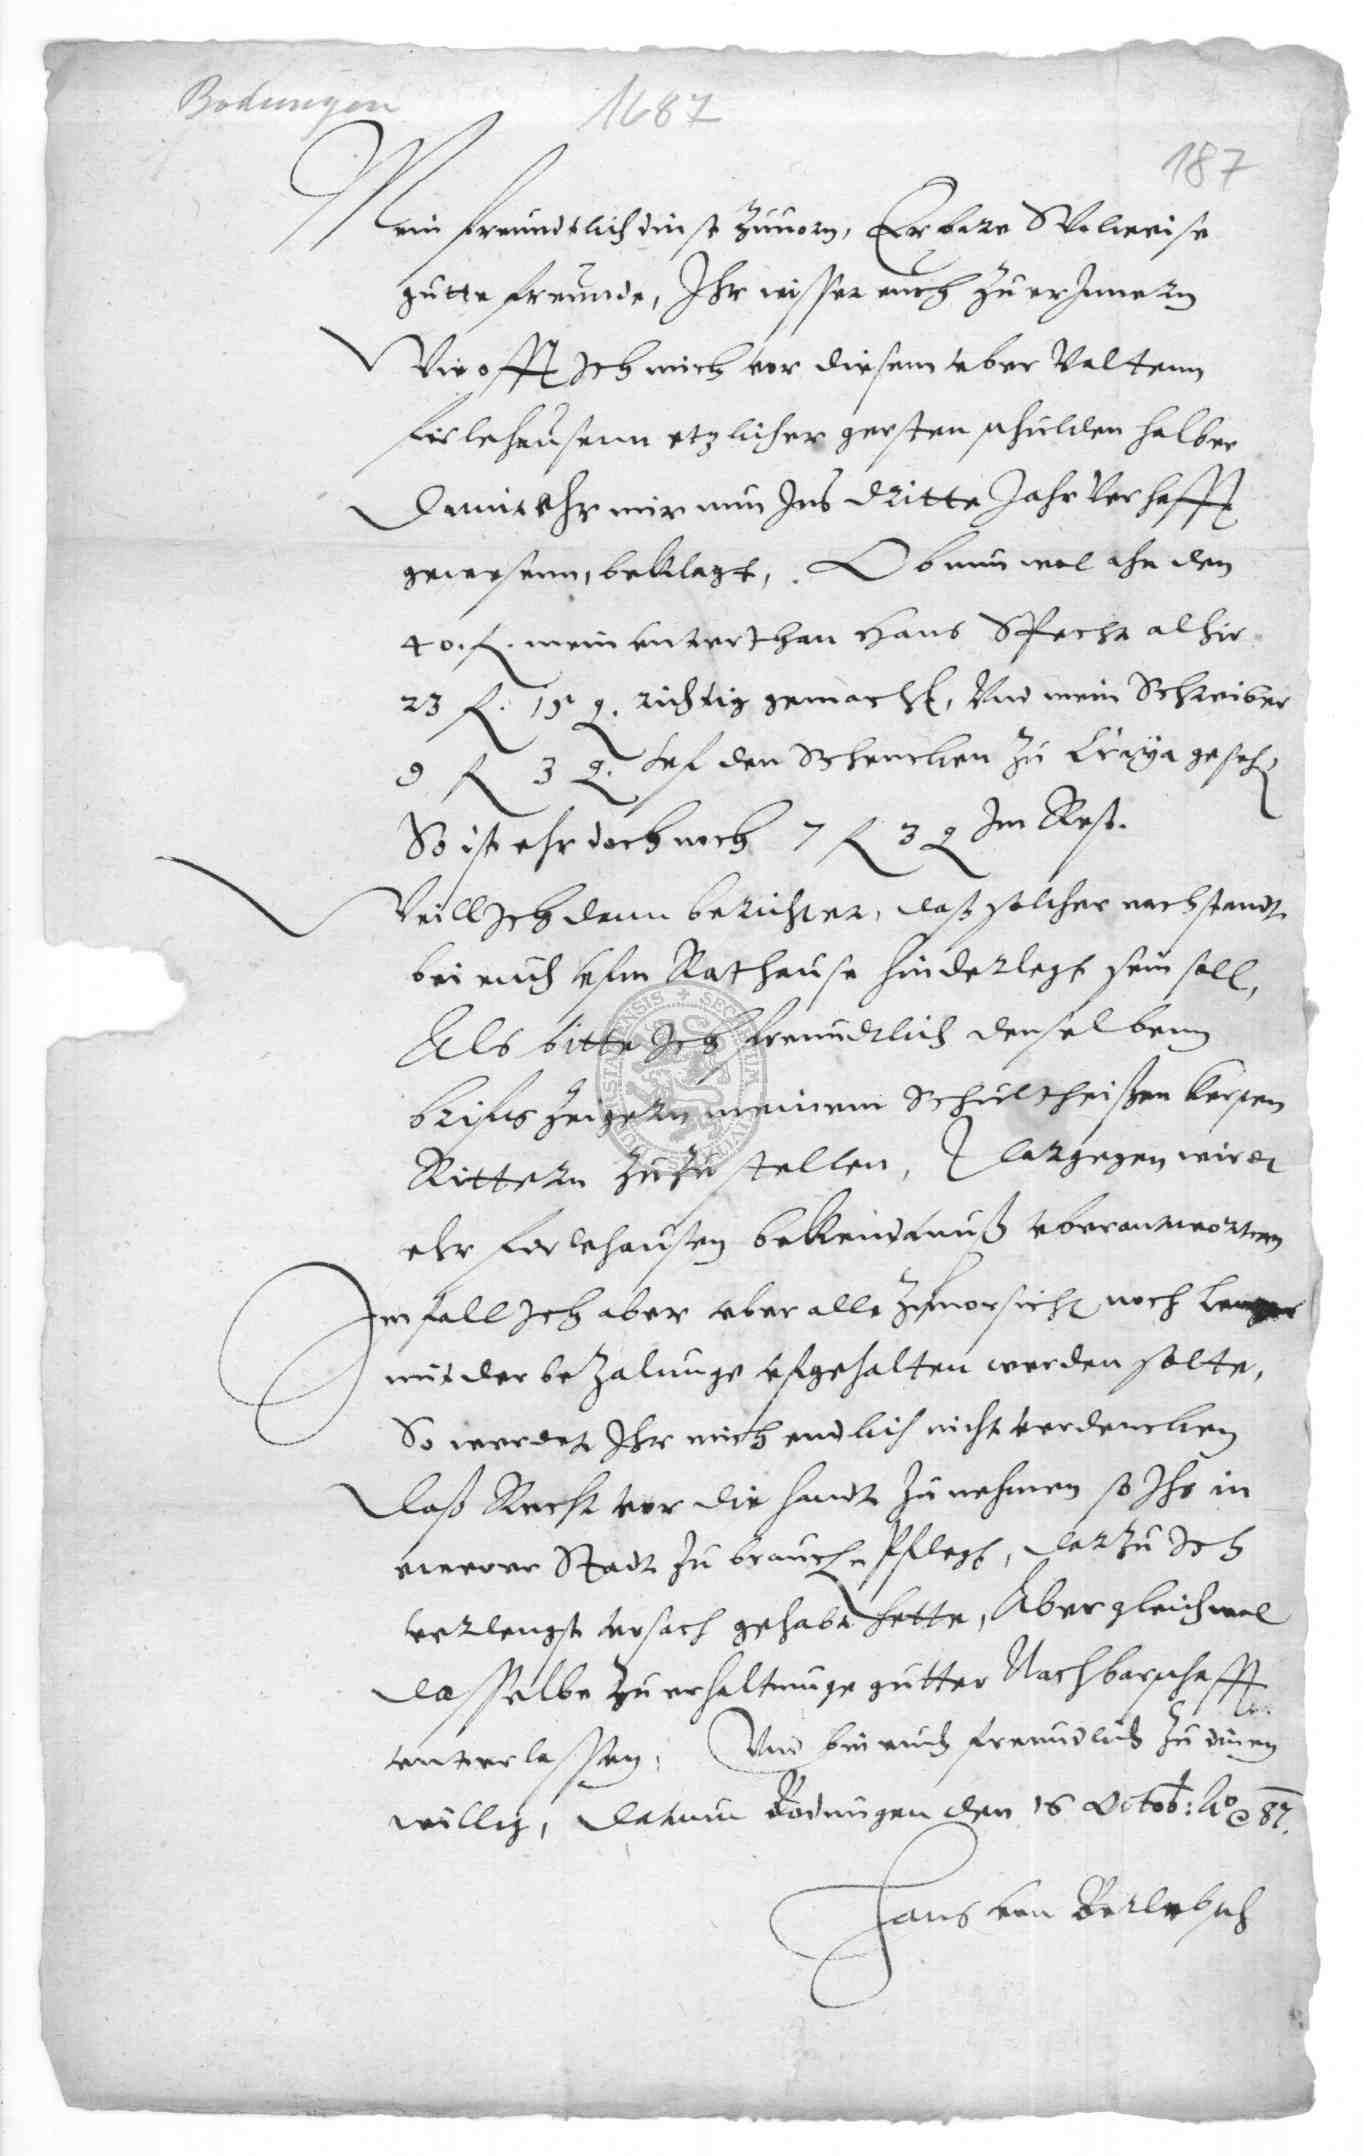 Bodungen
1687
187
Mein freundtlich dinst zuuorn, Erbare Wolweise
gutte freunde, Ihr wisset euch zu erJnnern
Wie offt Jch mich vor diesem vber Valtenn
firlehausenn etzlicher gersten schulden halber
Damit ehr mir nun Ins dritte Jahr verhafft
gewesenn, beklagt, Ob nun wol ahn den
40. fl. mein vnterthan Hans Specht alhir
23 fl. 15 g. richtig gemacht, Vnd mein Schreiber
9 fl 3 g. vf den Schencken zu Craya gesetzt
So ist ehr doch noch 7 fl 3 g Im Rest.
Weill Jch dann berichtet, daß solcher nachstandt
bei euch vfm Rathause hinderlegt sein soll,
Als bitte Jch freundtlich denselbenn
brifes zeigern meinem Schultheißen
Rittern zuzustellen, dargegen wirdt
ehr firlehausen bekendtnuß vberantworten
Im fall Jch aber vber alle zuuorsicht noch lenger
mit der bezalunge vfgehalten werden solte,
So werdet Ihr mich endlich nicht verdencken
daß Recht vor die handt zu nehmen so Ihr in
ewerer Stadt zu brauchen Pflegt, darzu Jch
vorlengst vrsach gehabt hette, Aber gleichwol
dasselbe zu erhaltunge gutter Nachbarschafft
vnterlassen, Vnd bin euch freundlich zu dinen
willig, datum Bodungen den 16 Octob: Ao 87.
Hans von Berlebsch